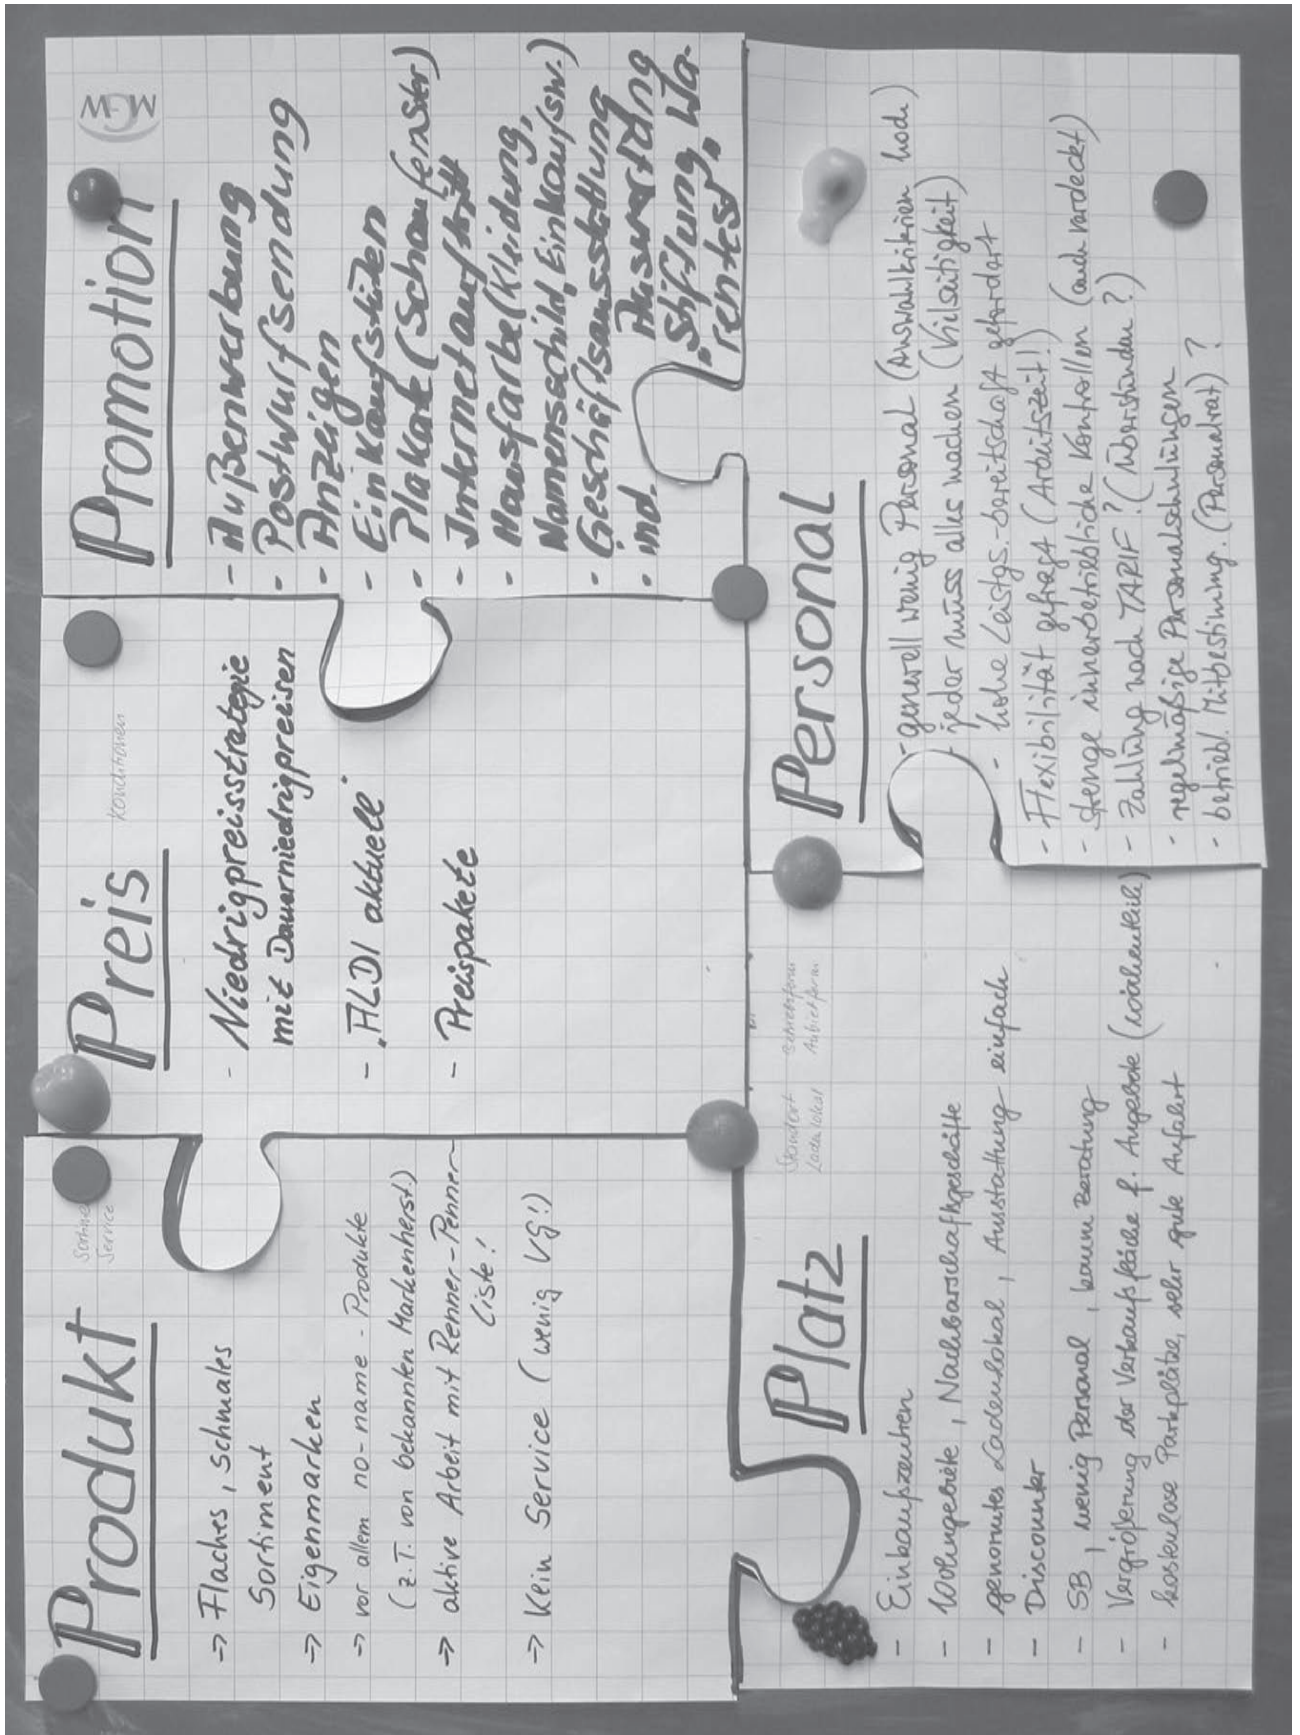 Produkt
Service
-> Flaches, schmales
Sortiment
-> Eigenmarken
-> vor allem no-name-Produkte
(z.T. von bekannten Markenherst.)
-> aktive Arbeit mit Renner-Penner-
Liste!
-> Kein Service (wenig VG!)
Preis
Konditionen
- Niedrigpreisstrategie
mit Dauerniedrigpreisen
- "ALDI aktuell"
- Preispakete
Promotion
MGW
- Außenwerbung
- Postwurfsendung
- Anzeigen
- Einkaufstüten
- Plakate (Schaufenster)
- Internetauftritt
- Hausfarbe (Kleidung,
Namensschild, Einkaufsw.)
- Geschäftsausstattung
- ind. Auswertung
"Stiftung Wa-
rentest"
Platz
Standort
Ladenlokal
Betriebsform
Anbietform
- Einkaufszentren
- Wohngebiete, Nachbarschaftgeschäfte
- genormtes Ladenlokal, Austattung einfach
- Discounter
- SB, wenig Personal, kaum Beratung
- Vergrößerung der Verkaufsfläche f. Angebote (wöchentlich)
- kostenlose Parkplätze, sehr gute Anfahrt
Personal
- generell wenig Personal (Auswahlkriterien hoch)
- jeder muss alles machen (Vielseitigkeit)
- hohe Leistgs.bereitschaft gefordert
- Flexibilität gefragt (Arbeitszeit!)
- strenge innerbetriebliche Kontrollen (auch verdeckt)
- Zahlung nach TARIF? (Überstunden?)
- regelmäßige Personalschulungen
- betriebl. Mitbestimmg. (Personalrat)?